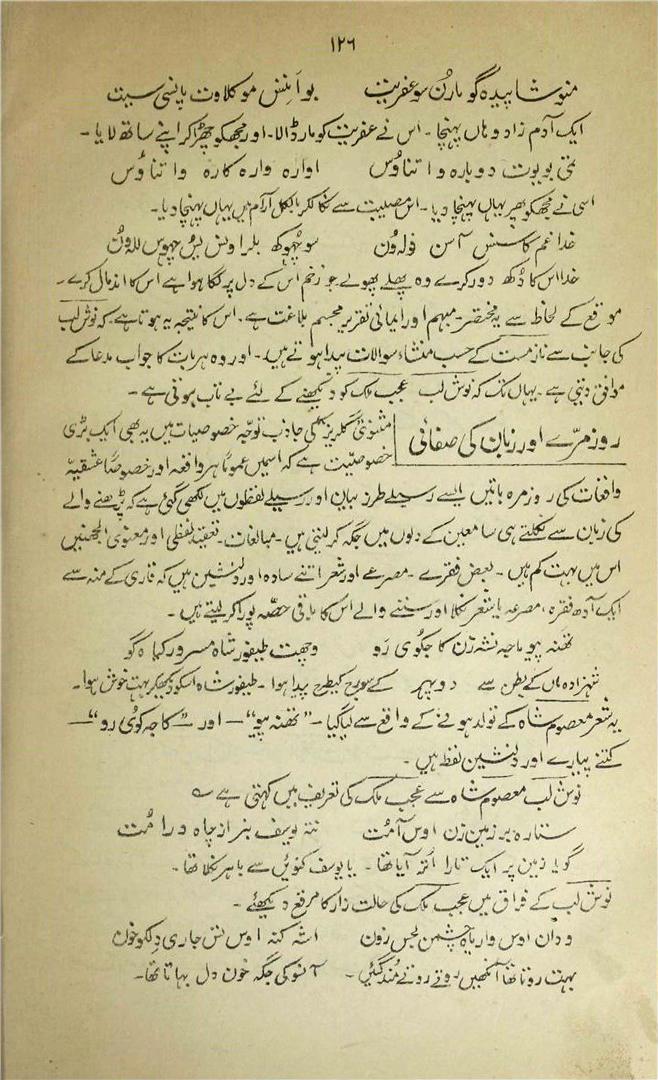 ۱۲۶
منوشا پیدہ گو مارُن سو عفریت بو اَنِنس موکلاوت پانسی سیت
ایک آدم زاد وہاں پہنچا۔ اس نے عفریت کو مار ڈالا۔ اور مجھکو چھڑا کر اپنے ساتھ لایا۔
تمی بویوت دوبارہ واتناوُس اوارہ وارہ کارہ واتناوُس
اسی نے مجھکو پھر یہاں پہنچا دیا۔ اس مصیبت سے نکالکر بالکل آرام میں یہاں پہنچا دیا۔
خدا غم کاسنس آسن فولہ وُن سو چُھوکھ بلراونس یُس چھوس للہ وُن
خدا اس کا دُکھ دور کرے وہ پھلے پھولے جو زخم اس کے دل پر لگا ہوا ہے اس کا اندمال کرے۔
موقع کے لحاظ سے یہ مختصر۔ مبہم اور ایمائی تقریر مجسم بلاغت ہے۔ اس کا نتیجہ یہ ہوتا ہے۔ کہ نوش لب
کی جانب سے نازمست کے حسب منشاء سوالات پیدا ہوتے ہیں۔ اور وہ ہر بات کا جواب مدعا کے
موافق دیتی ہے۔ یہاں تک کہ نوش لب عجب ملک کو دیکھنے کے لئے بے تاب ہوتی ہے۔
روزمرّے اور زبان کی صفائی مثنوی گلریز کی جاذب توجّہ خصوصیات میں یہ بھی ایک بڑی
خصوصیّت ہے کہ اسمیں عموماً ہر واقعہ اور خصوصاً عشقیہ
واقعات کی روزمرہ باتیں ایسے رسیلے طرز بیان اور رسیلے لفظوں میں لکھی گئی ہے کہ پڑھنے والے
کی زبان سے نکلتے ہی سامعین کے دلوں میں جگہ کر لیتی ہیں۔ مبالغات۔ تعقید لفظی اور معنوی الجھنیں
اس میں بہت کم ہیں۔ بعض فقرے۔ مصرعے اور شعر اتنے سادہ اور دلنشین ہیں کہ قاری کے منہ سے
ایک آدھ فقرہ، مصرعہ یا شعر نکلا اور سننے والے اس کا باقی حصّہ پورا کر لیتے ہیں۔
تھنہ پیو ماجہ نشہ زن کاجکوی رَو وچھت طیفور شاہ مسرور کیاہ گو
شہزادہ ماں کے بطن سے دوپہر کے سورج کیطرح پیدا ہوا۔ طیفور شاہ اسکو دیکھکر بہت خوش ہوا۔
یہ شعر معصوم شاہ کے تولد ہونے کے واقع سے لیا گیا۔ “تھنہ پیو”۔ اور ”کاجہ کوُی رو“۔
کتنے پیارے اور دلنشین لفظ ہیں۔
نوش لب معصوم شاہ سے عجب ملک کی تعریف میں کہتی ہے
ستارہ بر زمین زن اوس آمُت نتہ یوسف بنر از چاہ درامُت
گویا زمین پر ایک تارا اُتر آیا تھا۔ یا یوسف کنوئیں سے باہر نکلا تھا۔
نوش لب کے فراق میں عجب ملک کی حالت زار کا مرقع دیکھئے۔
ودان اوس واریاہ چشمن لجس زون اشہ کنہ اوس نس جاری دلکو خون
بہت روتا تھا آنکھیں روتے روتے مُند گئیں۔ آنسو کی جگہ خون دل بہاتا تھا۔